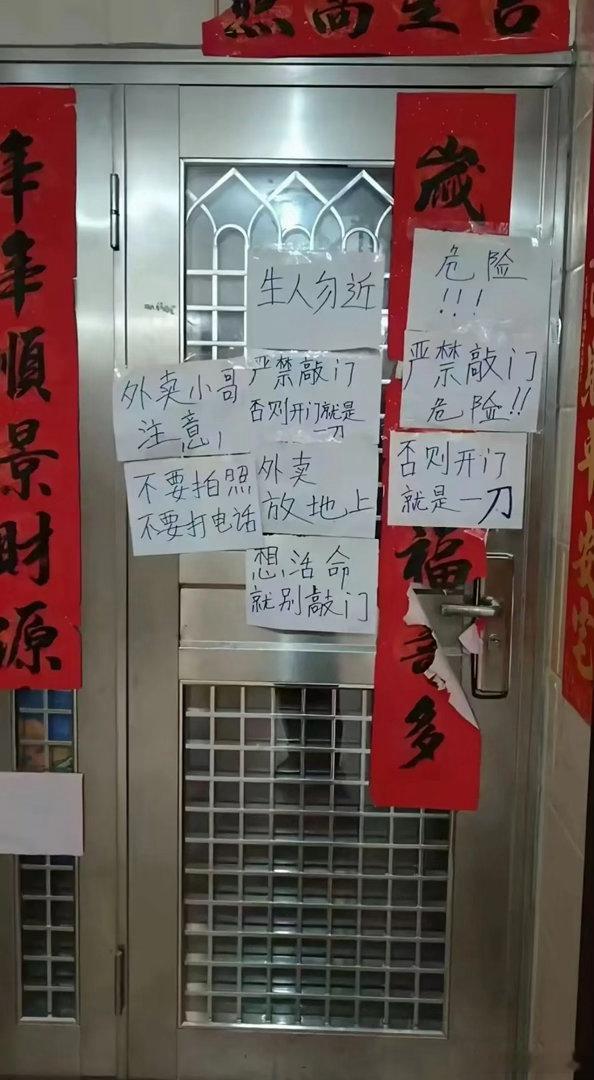 吉星高照
年年順景財源
歲
福
多
生人勿近
危险
!!!
外卖小哥
注意!
严禁敲门
否则开门就是
一刀
严禁敲门
危险!!
不要拍照
不要打电话
外卖
放地上
否则开门
就是一刀
想活命
就别敲门
平安宅